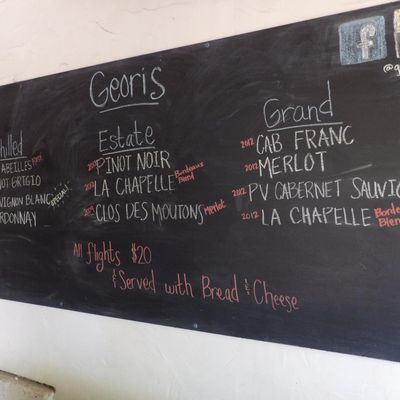 Georis
hilled
ABEILLES
NOT GRIGIO
VIGNON BLANC SPECIAL!
RDONNAY
Estate
PINOT NOIR
LA CHAPELLE Bordeaux Blend
CLOS DES MOUTONS Merlot
Grand
2012 CAB FRANC
2012 MERLOT
2012 PV CABERNET SAUVIG
2012 LA CHAPELLE Borde Blen
All flights $20
& Served with Bread & Cheese
f
@g